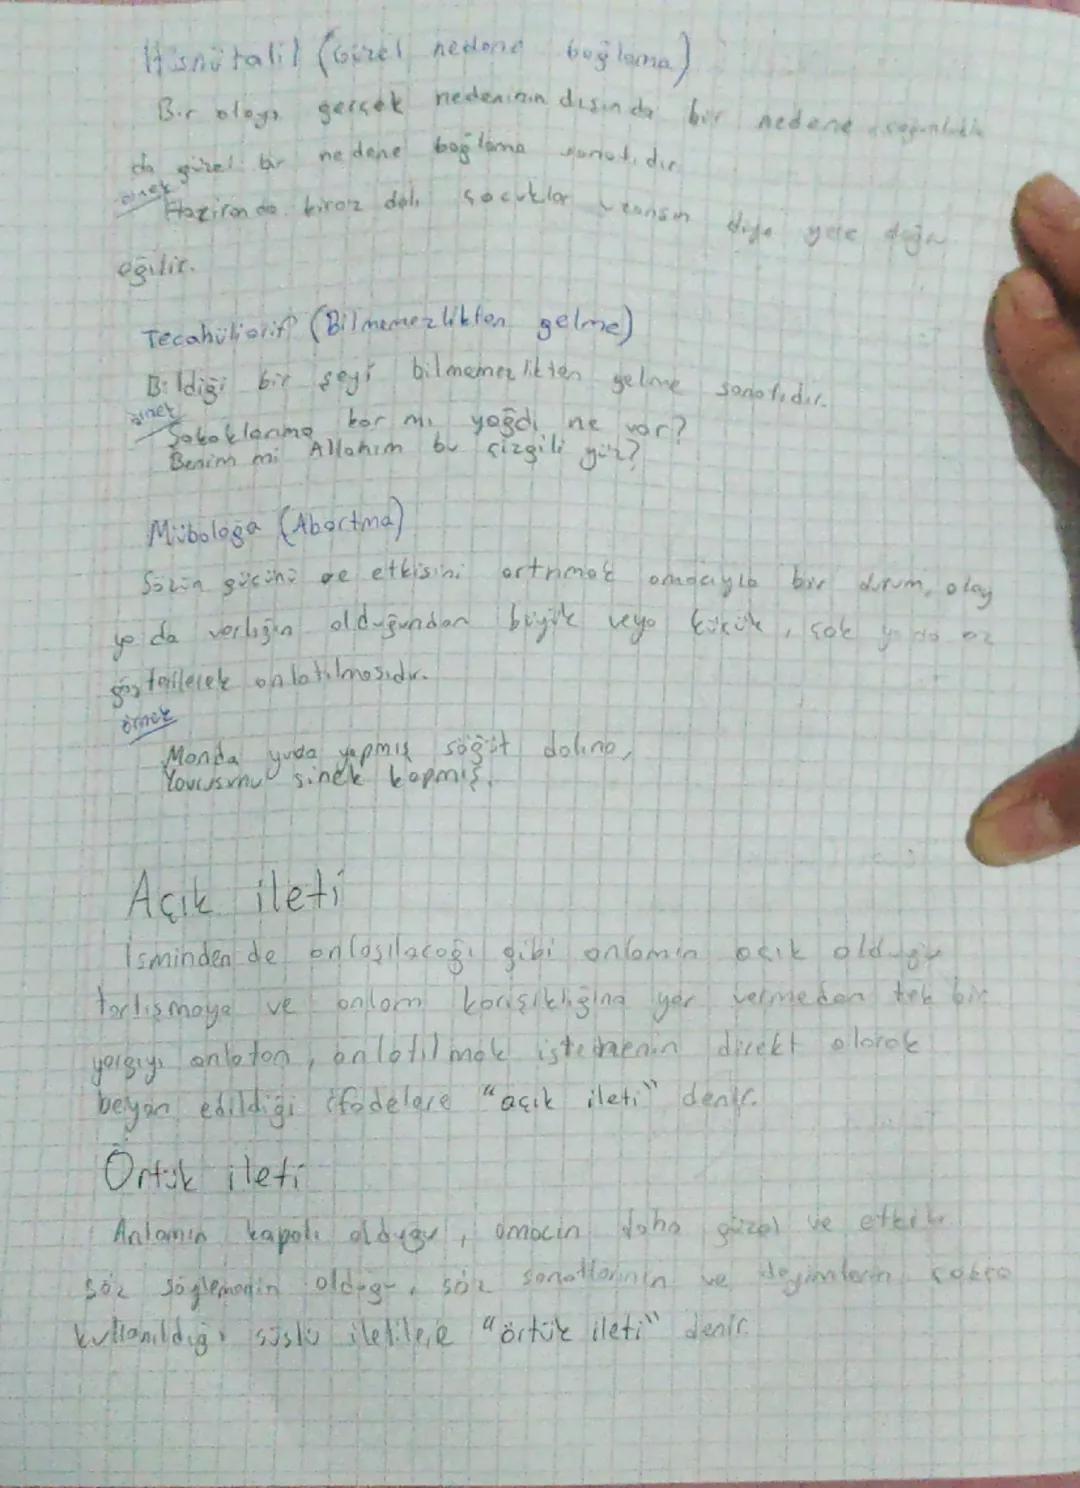 Hüsnütalil (Güzel nedene bağlama)
Bir olayı gerçek nedeninin dışında bir nedene çoğunlukla
da güzel bir nedene bağlama sanatıdır.
örnek
Haziranda kiraz dalı çocuklar uzansın diye yere doğru
eğilir.
Tecahüliarif (Bilmemezlikten gelme)
Bildiği bir şeyi bilmemezlikten gelme sanatıdır.
örnek
Şakaklarıma kar mı yağdı ne var?
Benim mi Allahım bu çizgili yüz?
Mübalağa (Abartma)
Sözün gücünü ve etkisini artırmak amacıyla bir durum, olay
ya da varlığın olduğundan büyük veya küçük, çok ya da az
gösterilerek anlatılmasıdır.
örnek
Manda yuva yapmış söğüt dalına,
Yavrusunu sinek kapmış.
Açık ileti
İsminden de anlaşılacağı gibi anlamın açık olduğu
tartışmaya ve anlam karışıklığına yer vermeden tek bir
yargıyı anlatan, anlatılmak istenenin direkt olarak
beyan edildiği ifadelere "açık ileti" denir.
Örtük ileti
Anlamın kapalı olduğu, amacın daha güzel ve etkili
söz söylemenin olduğu, söz sanatlarının ve deyimlerin çokça
kullanıldığı süslü iletilere "örtük ileti" denir.